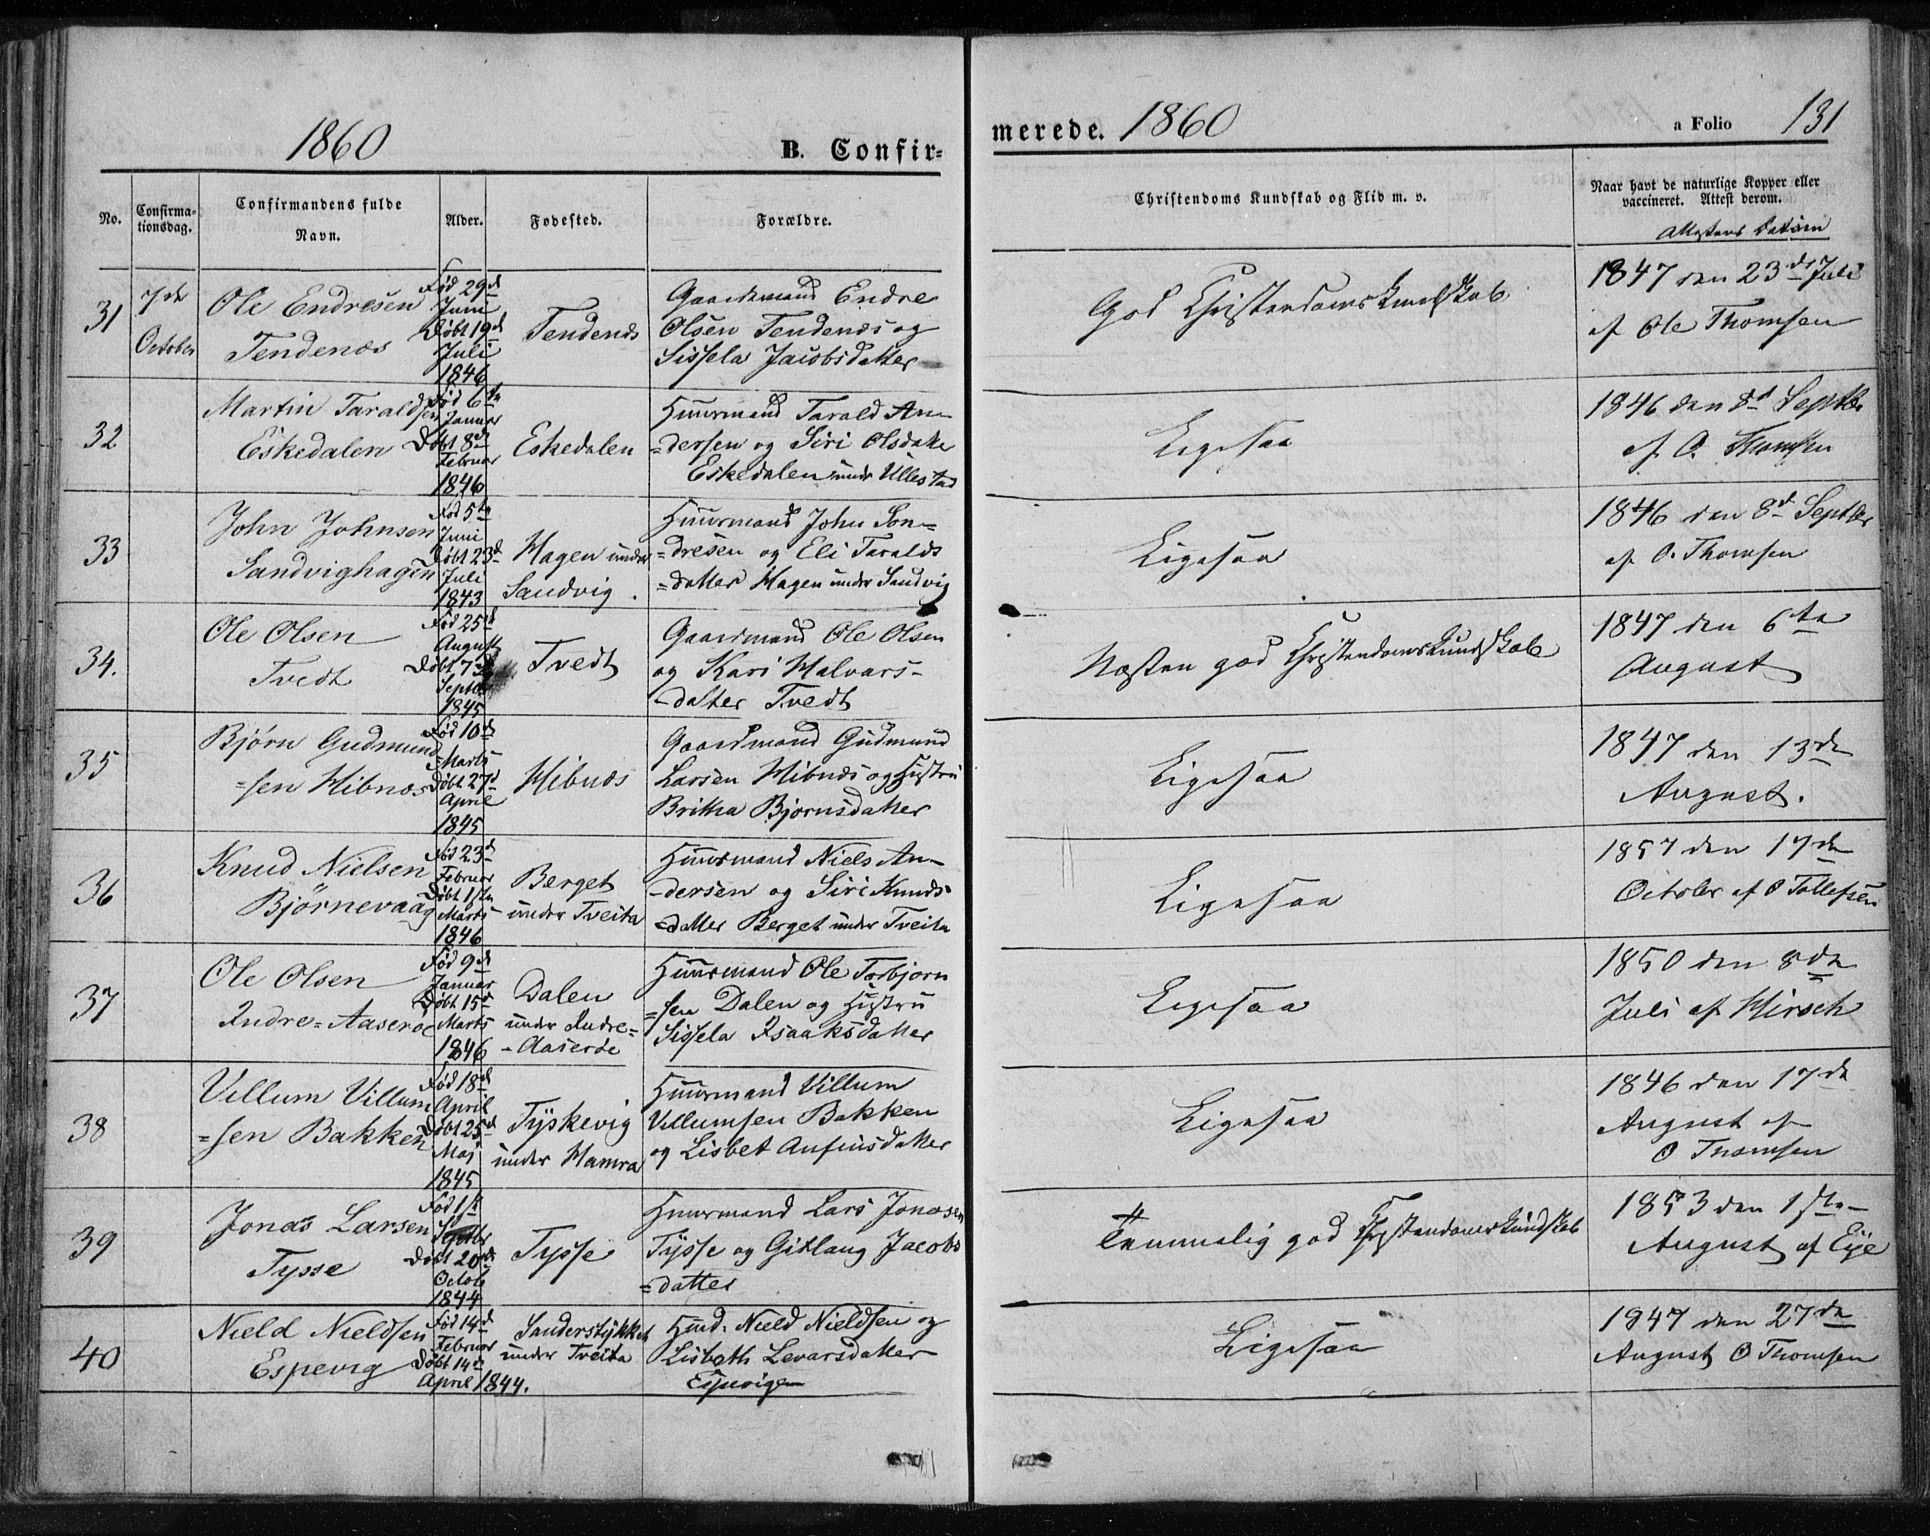 1860
B. Confir-
merede. 1860
a Folio 131
No.
Confirma-
tionsdag.
Confirmandens fulde
Navn.
Alder.
Fødested.
Forældre.
Christendoms Kundskab og Flid m. v.
Naar havt de naturlige Kopper eller
vaccineret. Attest derom.
Attestens Datum
31
7de
October
Ole Endresen
Tendenæs
Fød 29d
Juni
Døbt 19d
Juli
1846
Tendenæs
Gaardmand Endre
Olsen Tendenæs og
Sissela Jacobsdatter
God Christendomskundskab
1847 den 23de Juli
af Ole Thomsen
32
Martin Taraldsen
Eskedalen
Fød 6te
Januar
Døbt 8de
Februar
1846
Eskedalen
Huusmand Tarald An-
=dersen og Siri Olsdatte
Eskedalen under Ullestad
Ligesaa
1846 den 8d Septbr
af O. Thomsen
33
John Johnsen
Sandvighagen
Fød 5te
Juni
Døbt 23d
Juli
1843
Hagen under
Sandvig.
Huusmand John Son=
=dresen og Eli Taralds
=datter Hagen under Sandvig
Ligesaa
1846 den 8d Septbr
af O. Thomsen
34.
Ole Olsen
Tvedt
Fød 25d
August
Døbt 7d
Septbr
1845
Tvedt
Gaardmand Ole Olsen
og Kari Halvars-
-datter Tvedt
Næsten god Christendomskundskab
1847 den 6te
August
35
Bjørn Gudmund
=sen Hibnæs
Fød 10d
Marts
Døbt 27d
April
1845
Hibnæs
Gaardmand Gudmund
Larsen Hibnæs og Hustru
Britha Bjørnsdatter
Ligesaa
1847 den 13de
August.
36
Knud Nielsen
Bjørnevaag
Fød 23d
Februar
Døbt 1ste
Marts
1846
Berget
under Tveita
Huusmand Niels An-
-dersen og Siri Knuds-
-datter Berget under Tveita
Ligesaa
1857 den 17de
October af O Tollefsen
37
Ole Olsen
Indre=Aaserøe
Fød 9d
Januar
Døbt 15d
Marts
1846
Dalen
under Indre=
-Aaserøe
Huusmand Ole Torbjørn
=sen Dalen og Hustru
Sissela Isaaksdatter
Ligesaa
1850 den 8de
Juli af Hirsch
38
Villum Villum
=sen Bakken
Fød 18d
April
Døbt 25d
Maj
1845
Tyskevig
under Hamra
Huusmand Villum
Villumsen Bakken
og Lisbet Anfinsdatter
Ligesaa
1846 den 17de
August af
O Thomsen
39
Jonas Larsen
Tysse
Fød 1st
Septbr
Døbt 20de
Octob
1844
Tysse
Huusmand Lars Jonasen
Tysse og Gitlaug Jacobs
=datter
Temmelig god Christendomskundskab
1853 den 1ste
August af Eje
40
Nield Nieldsen
Espevig
Fød 14d
Februar
Døbt 14de
April 1844.
Sanderstykket
under Tveita
Husd. Nield Nieldsen og
Lisbeth Levarsdatter
Espevigen
Ligesaa
1847 den 27de
August O Thomsen